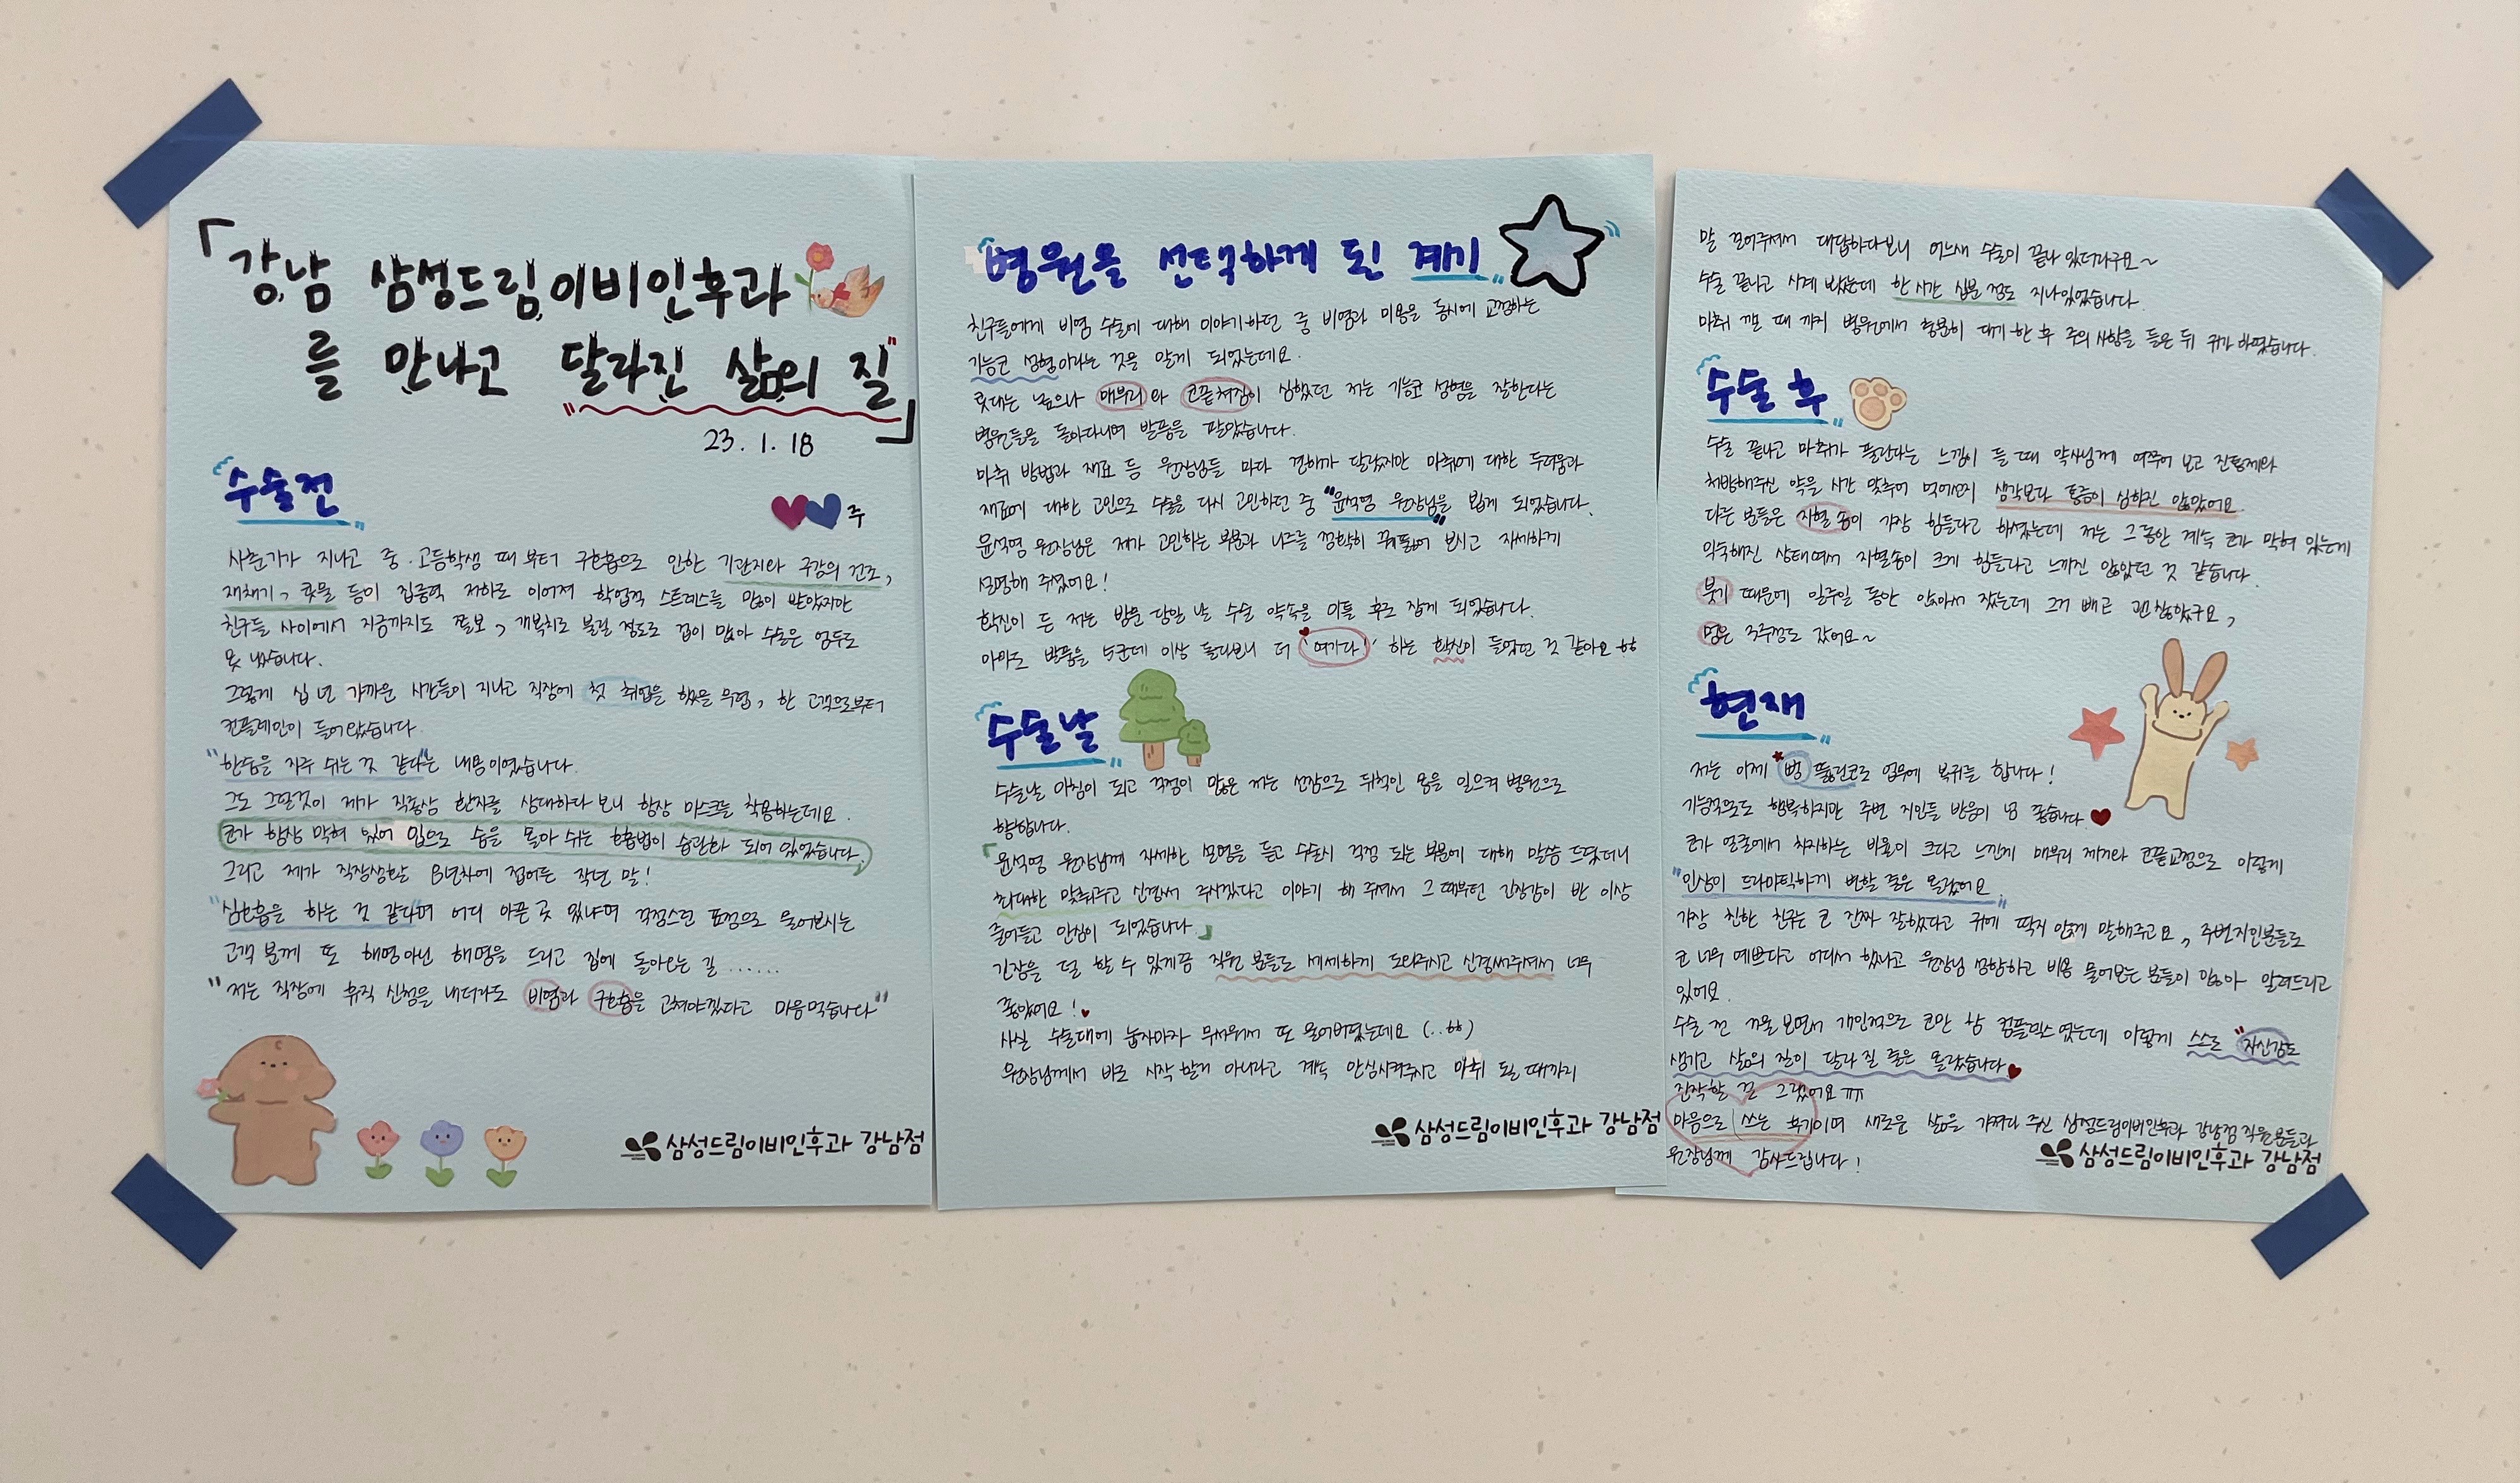 「강남 삼성드림이비인후과
를 만나고 "달라진 삶의 질"」
23. 1. 18
"수술전"
주
사춘기가 지나고 중·고등학생 때부터 구호흡으로 인한 기관지와 구강의 건조,
재채기, 콧물 등이 집중력 저하로 이어져 학업적 스트레스를 많이 받았지만
친구들 사이에서 지금까지도 쫄보, 개복치로 불릴 정도로 겁이 많아 수술은 엄두도
못 냈습니다.
그렇게 십 년 가까운 시간들이 지나고 직장에 첫 취업을 했을 무렵, 한 고객으로부터
컨플레인이 들어왔습니다.
"한숨을 자주 쉬는 것 같다"는 내용이였습니다.
그도 그럴것이 제가 직종상 환자를 상대하다 보니 항상 마스크를 착용하는데요.
코가 항상 막혀 있어 입으로 숨을 몰아 쉬는 호흡법이 습관화 되어 있었습니다.
그리고 제가 직장생활 8년차에 접어든 작년 말!
"심호흡을 하는 것 같다"며 어디 아픈 곳 있냐며 걱정스런 표정으로 물어보시는
고객 분께 또 해명아닌 해명을 드리고 집에 돌아오는 길 ......
"저는 직장에 휴직 신청을 내더라도 비염과 구호흡을 고쳐야겠다고 마음먹습니다"
삼성드림이비인후과 강남점
"병원을 선택하게 된 계기"
친구들에게 비염 수술에 대해 이야기하던 중 비염과 미용을 동시에 교정하는
기능코 성형이라는 것을 알게 되었는데요.
콧대는 높으나 매부리와 코끝처짐이 심했던 저는 기능코 성형을 잘한다는
병원들을 돌아다니며 발품을 팔았습니다.
마취 방법과 재료 등 원장님들 마다 견해가 달랐지만 마취에 대한 두려움과
재료에 대한 고민으로 수술을 다시 고민하던 중 "윤석영 원장님"을 뵙게 되었습니다.
윤석영 원장님은 제가 고민하는 부분과 니즈를 정확히 꿰뚫어 보시고 자세하게
설명해 주셨어요!
확신이 든 저는 방문 당일 날 수술 약속을 이틀 후로 잡게 되었습니다.
아마도 발품을 5군데 이상 돌다보니 더 '여기다!' 하는 확신이 들었던 것 같아요 ㅎㅎ
"수술날"
수술날 아침이 되고 걱정이 많은 저는 선잠으로 뒤척인 몸을 일으켜 병원으로
향합니다.
「윤석영 원장님께 자세한 설명을 듣고 수술시 걱정 되는 부분에 대해 말씀 드렸더니
최대한 맞춰주고 신경써 주시겠다고 이야기 해 주셔서 그 때부턴 긴장감이 반 이상
줄어들고 안심이 되었습니다.」
긴장을 덜 할 수 있게끔 직원 분들도 세세하게 도와주시고 신경써주셔서 너무
좋았어요!
사실 수술대에 눕자마자 무서워서 또 울어버렸는데요 (..ㅎㅎ)
원장님께서 바로 시작 할거 아니라고 계속 안심시켜주시고 마취 될 때까지
삼성드림이비인후과 강남점
말 걸어주셔서 대답하다보니 어느새 수술이 끝나 있더라구요~
수술 끝나고 시계 봤는데 한 시간 십분 정도 지나있었습니다.
마취 깰 때 까지 병원에서 충분히 대기 한 후 주의 사항을 들은 뒤 귀가 하였습니다.
"수술 후"
수술 끝나고 마취가 풀린다는 느낌이 들 때 약사님께 여쭈어 보고 진통제와
처방해주신 약을 시간 맞추어 먹어선지 생각보다 통증이 심하진 않았어요.
다른 분들은 지혈 솜이 가장 힘들다고 하셨는데 저는 그동안 계속 코가 막혀 있는게
익숙해진 상태여서 지혈솜이 크게 힘들다고 느끼진 않았던 것 같습니다.
붓기 때문에 일주일 동안 앉아서 잤는데 그거 빼고 괜찮았구요,
멍은 3주정도 갔어요~
"현재"
저는 이제 '뻥' 뚫린코로 업무에 복귀를 합니다!
기능적으로도 행복하지만 주변 지인들 반응이 넘 좋습니다.
코가 얼굴에서 차지하는 비율이 크다고 느낀게 매부리 제거와 코끝교정으로 이렇게
"인상이 드라마틱하게 변할 줄은 몰랐어요."
가장 친한 친구는 코 진짜 잘했다고 귀에 딱지 앉게 말해주고요, 주변지인분들도
코 너무 예쁘다고 어디서 했냐고 원장님 성함하고 비용 물어보는 분들이 많아 알려드리고
있어요.
수술 전 거울 보면서 개인적으로 코만 참 컴플렉스 였는데 이렇게 스스로 "자신감"도
생기고 삶의 질이 달라 질 줄은 몰랐습니다
진작할 걸 그랬어요 ㅠㅠ
마음으로 쓰는 후기이며 새로운 삶을 가져다 주신 삼성드림이비인후과 강남점 직원분들과
원장님께 감사드립니다!
삼성드림이비인후과 강남점